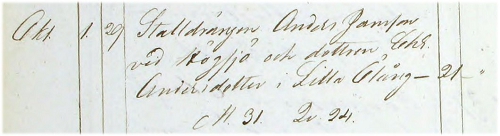 Okt. 1. 29 Stalldrängen Anders Jansson
vid Högsjö och dottren Chr.
Andersdotter i Lilla Ålång — 21 — "
M. 31. Qv. 24.